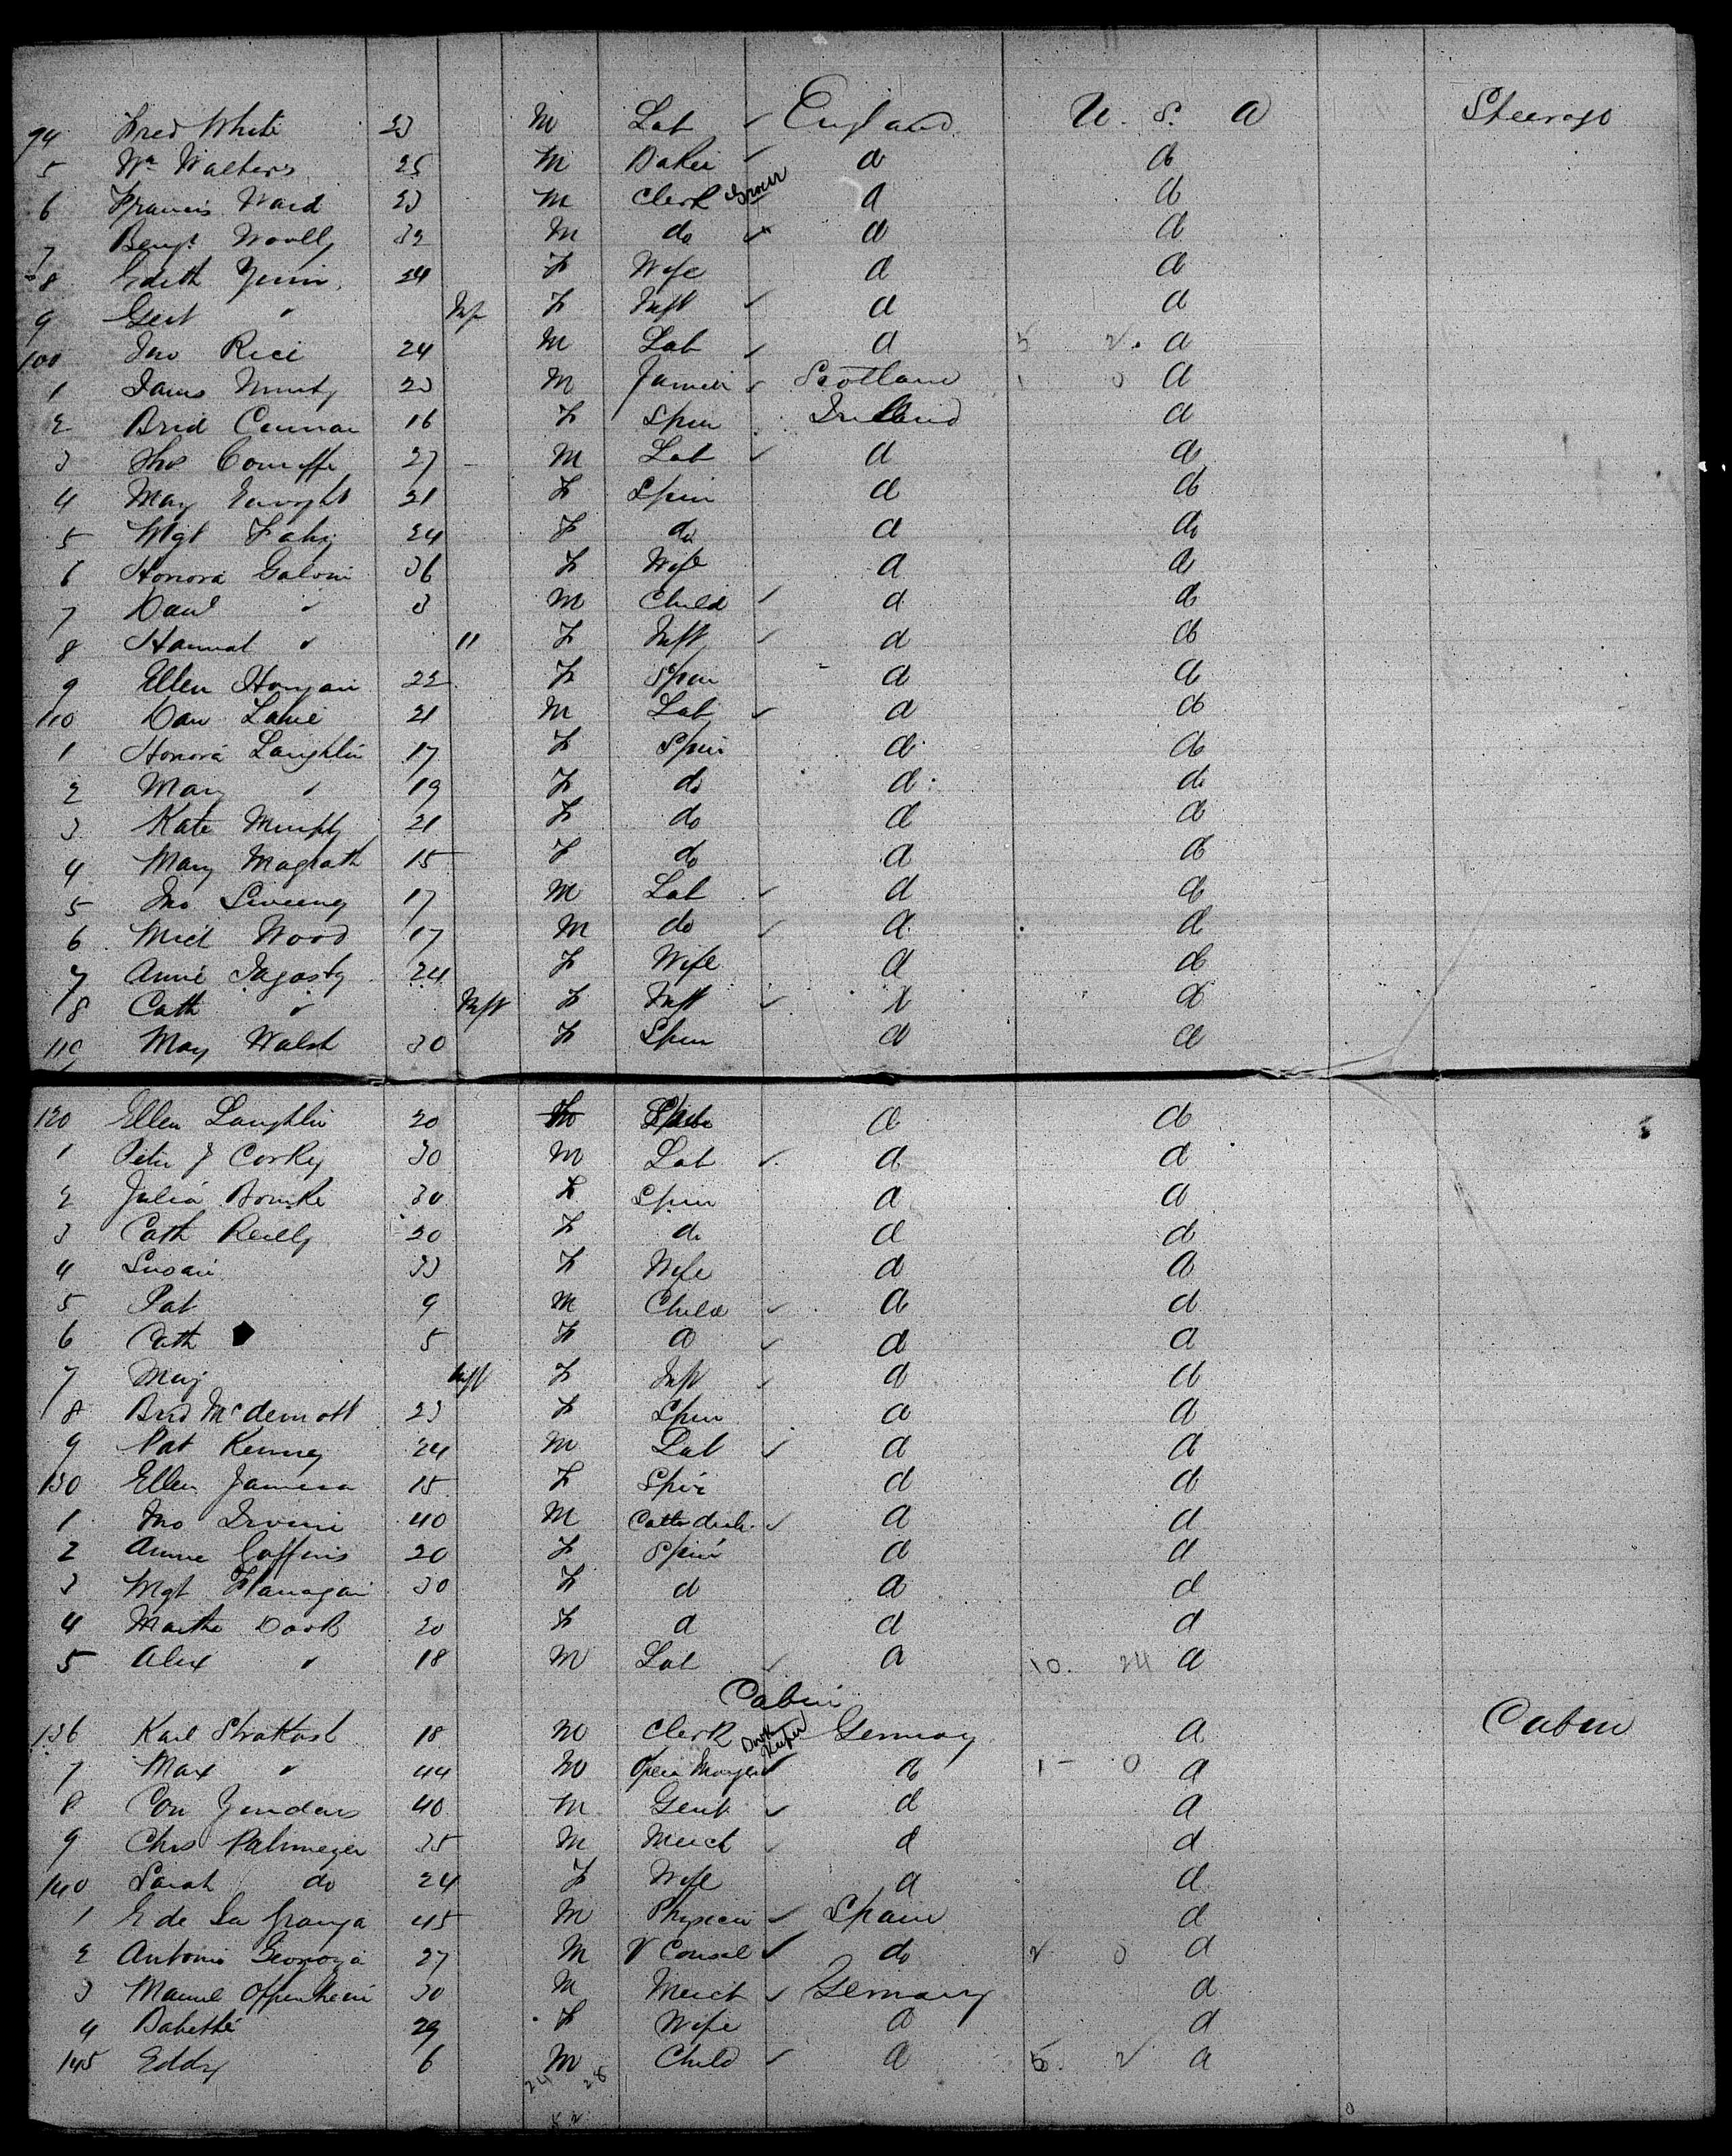 94 Fred White 23 M Lab ✓ England U. S. A Steerage
5 Wm Walters 25 M Baker ✓ do do
6 Francis Ward 23 M Clerk Grocer do do
7 Benj. Woolly 32 M do ✓ do do
8 Edith 24 F Wife do do
9 Gert " Inf F Inft ✓ do do
100 Jno Rice 24 M Lab ✓ do 5 2. do
1 James 23 M Farmer ✓ Scotland 1 0 do
2 Brid 16 F Spin Ireland do
3 Thos 27 M Lab ✓ do do
4 Mary Enright 21 F Spin do do
5 Mgt Fahy 24 F do do do
6 Honora Galvin 36 F Wife do do
7 Danl " 3 M Child ✓ do do
8 Hannah " 11 F Inft ✓ do do
9 Ellen Horgan 22 F Spin do do
110 Dan Lahie 21 M Lab ✓ do do
1 Honora Laughlin 17 F Spin do do
2 Mary " 19 F do do do
3 Kate Murphy 21 F do do do
4 Mary Magrath 15 F do do do
5 Jno Sweeney 17 M Lab ✓ do do
6 Mich Wood 17 M do ✓ do do
7 Annie 24 F Wife do do
8 Cath " Inft F Inft ✓ do do
119 Mary Walsh 30 F Spin do do
120 Ellen Laughlin 20 Spin do do
1 Peter J Corky 30 M Lab ✓ do do
2 Julia Bourke 30 F Spin do do
3 Cath Reilly 20 F do do do
4 Susan 33 F Wife do do
5 Pat 9 M Child ✓ do do
6 Cath 5 F do ✓ do do
7 Mary Inft F Inft ✓ do do
8 Brid McDermott 23 F Spin do do
9 Pat Kenney 24 M Lab ✓ do do
130 Ellen 15 F Spin do do
1 Jno Irvine 40 M Cattle deal. ✓ do do
2 Annie 20 F Spin do do
3 Mgt Flanagan 30 F do do do
4 Martha 20 F do do do
5 Alex " 18 M Lab ✓ do 10. 24 do
Cabin
136 Karl Strakosh 18 M Clerk Book Keeper Germany do Cabin
7 Max " 44 M Opera Manger ✓ do 1 - 0 do
8 Con 40 M Gent ✓ do do
9 Chrs Palmeyer 35 M Merch ✓ do do
140 Sarah do 24 F Wife do do
1 E de La Granja 45 M Physician ✓ Spain do
2 Antonio 27 M V Consul ✓ do 2 0 do
3 Manuel Oppenheim 30 M Merch ✓ Germany do
4 Babette 29 F Wife do do
145 Eddy 6 M Child ✓ do 5. 2 do
24 28
52 0